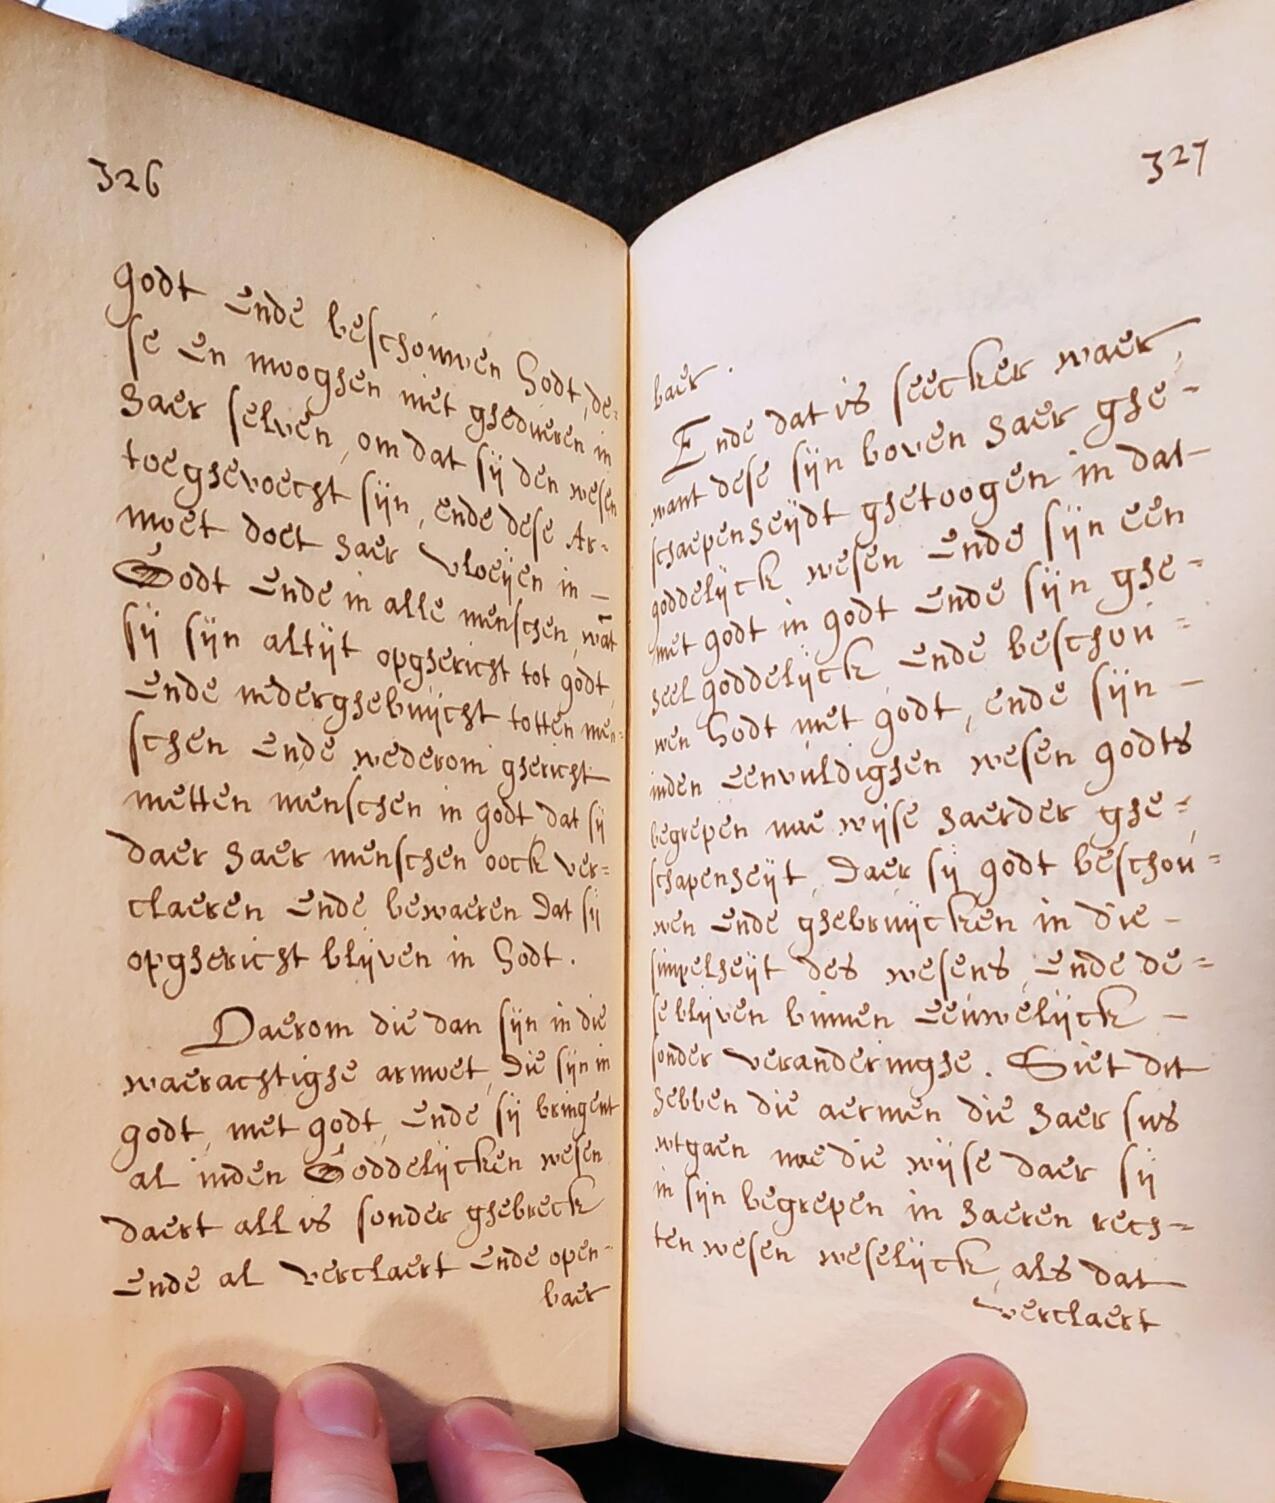 326
godt ende beschouwen Godt, de=
se en mooghen niet ghedueren in
haer selven, om dat sij den wesen
toeghevoecht sijn, ende dese Ar=
moet doet haer vloeijen in –
Godt ende in alle menschen, wāt
sij sijn altijt opghericht tot godt,
ende nederghebuijcht totten men=
schen ende wederom ghericht
metten menschen in godt, dat sij
daer haer menschen oock ver=
claeren ende bewaeren dat sij
opghericht blijven in Godt.
Daerom die dan sijn in die
waerachtighe armoet, die sijn in
godt, met godt, ende sij bringent
al inden Goddelijcken wesen
daert all is sonder ghebreck
ende al verclaert ende open=
baer
327
baer.
Ende dat is seecker waer,
want dese sijn boven haer ghe=
schaepenheijdt ghetoogen in dat
goddelijck wesen ende sijn een
met godt in godt ende sijn ghe=
heel goddelijck ende beschou=
wen Godt met godt, ende sijn –
inden eenvuldighen wesen godts
begrepen nae wijse haerder ghe=
schapenheijt, daer sij godt beschou=
wen ende ghebruijcken in die –
simpelheijt des wesens, ende de=
se blijven binnen eeuwelijck –
sonder veranderinghe. Siet dit
hebben die aermen die haer sus
wtgaen nae die wijse daer sij
in sijn begrepen in haeren rech=
ten wesen weselijck, als dat
verclaert